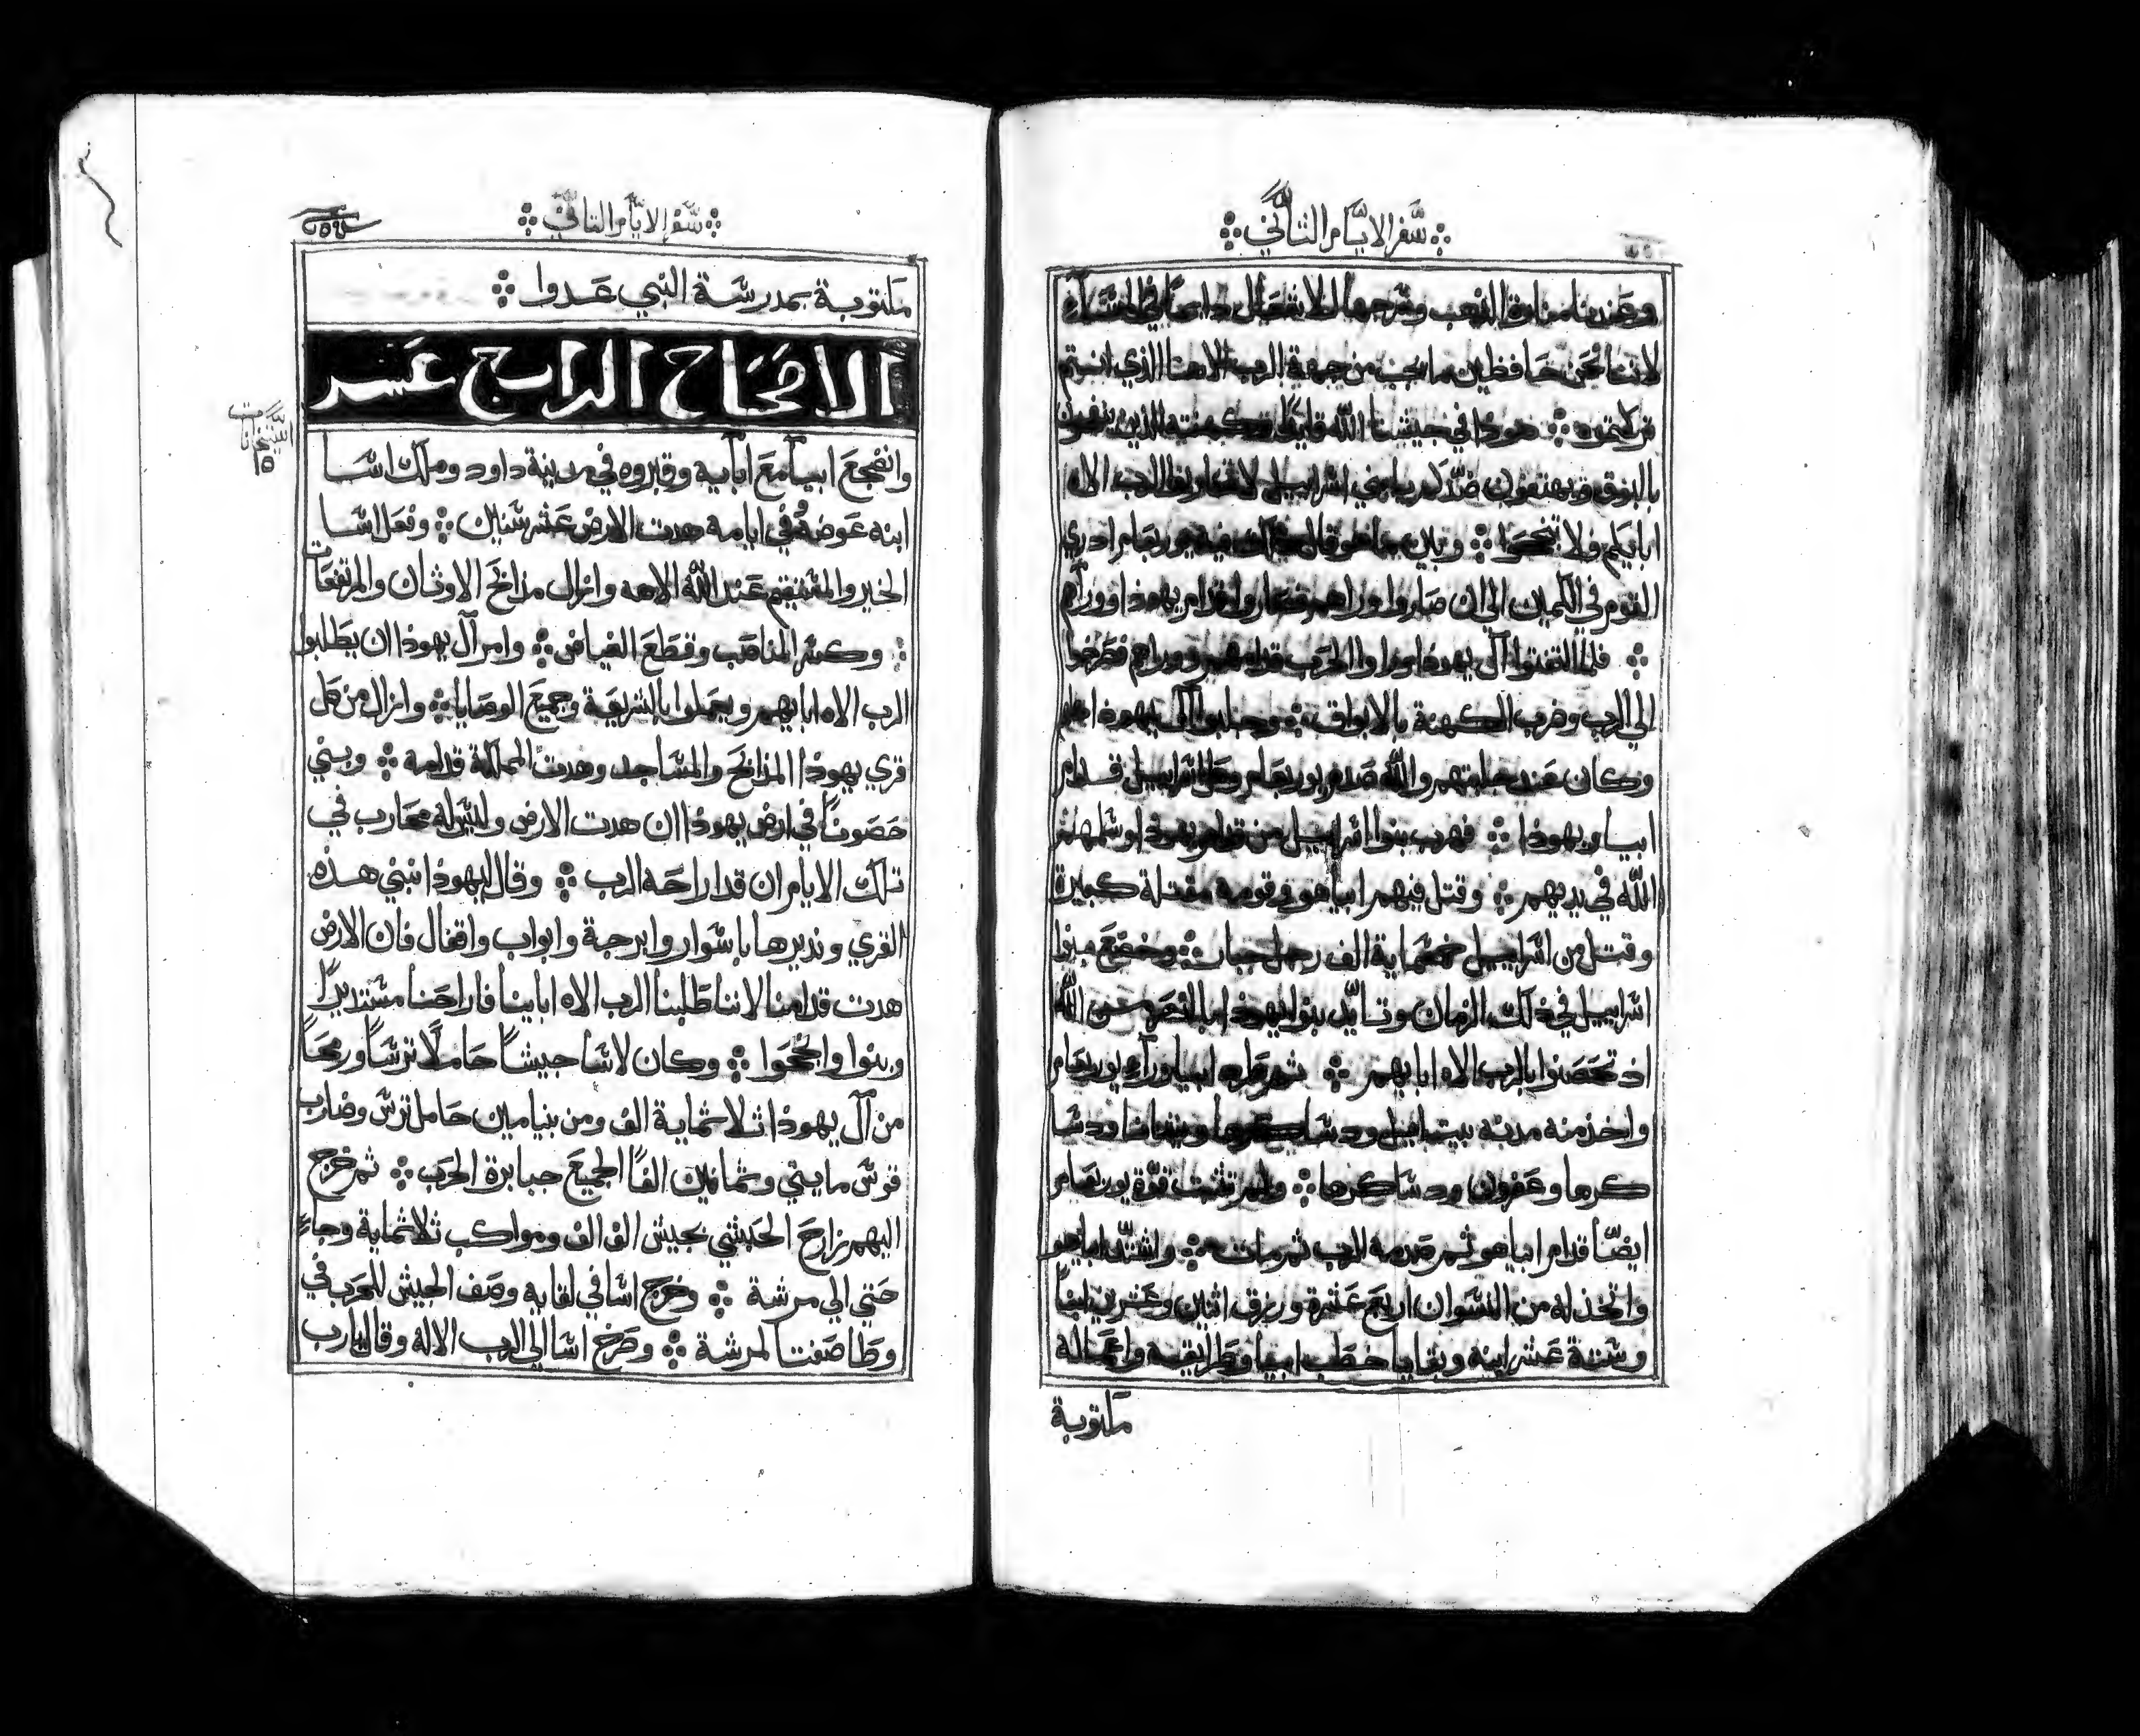 ܀ سفر الايام الثاني ܀
لاننا نحن حافظين ما يجب من جهة الرب الاهنا الذي انتم
تركتموه ܀ هوذا في جيشنا الله قايدًا وكهنته الذين ينفخون
بالبوق ويهتفون ضدكم يا بني اسراييل لا تقاوموا الرب الاه
ابايكم ولا تنجحوا ܀ وبين ما هو قال ذلك فيه يوربعام ادري
القوم في الكمين الي ان صاروا وراهم فصاروا قدام يهوذا ووراهم
܀ فلما التفتوا آل يهوذا وراوا الحرب قدامهم ووراهم فصرخوا
الي الرب وضرب الكهنة بالابواق ܀ وجلبوا آل يهوذا
وكان عند جلبتهم والله صدم يوربعام وكل اسراييل قدام
ابيا ويهوذا ܀ فهرب بنوا اسراييل من قدام يهوذا وسلمهم
الله في يديهم ܀ وقتل فيهم ابياهو وقومه مقتلة كبيرة
وقتل من اسراييل خمسماية الف رجل جبار ܀ وخضع بنوا
اسراييل في ذلك الزمان وتايد بنوا يهوذا بالنصر من الله
اذ تحصنوا بالرب الاه ابايهم ܀ ثم طرد ابيا ورآء يوربعام
واخذ منه مدينة بيت ايل ودساكرها ويشانا ودسا
كرها وعفرون ودساكرها ܀ ولم تثبت قوّة يوربعام
ايضًا قدام ابياهو ثم صدمه الرب ثم مات ܀ واشتدّ ابياهو
واتخذ له من النسوان اربع عشرة ورزق اثنين وعشرين ابنًا
وستة عشر ابنة وبقايا خطب ابيا وطرايقه واعماله
مكتوبة
܀ سفر الايام الثاني ܀
مكتوبة بمدرسة النبي عدوا ܀
الاصحاح الرابع عشر
وانضجع ابيا مع ابايه وقبروه في مدينة داود وملك اسا
ابنه عوضه في ايامه هدت الارض عشر سنين ܀ وفعل اسا
الخير والمستقيم عند الله الاهه وازال مذابح الاوثان والمرتفعات
܀ وكسر المناصب وقطع الغياض ܀ وامر آل يهوذا ان يطلبوا
الرب الاه ابايهم ويعملوا بالشريعة وجميع الوصايا ܀ وازال من كل
قري يهوذا المذابح والمساجد وهدت المملكة قدامه ܀ وبني
حصونًا في ارض يهوذا ان هدت الارض وليس له محارب في
تلك الايام ان قد اراحه الرب ܀ وقال ليهوذا نبني هذه
القري وندبرها باسوار وابرجة وابواب واقفال فان الارض
هدت قدامنا لاننا طلبنا الرب الاه ابايينا فاراحنا مستديرًا
وبنوا وانجحوا ܀ وكان لاسا جيشًا حاملًا ترسًا ورمحًا
من آل يهوذا ثلاثماية الف ومن بنيامين حامل ترس وضارب
قوس مايتي وثمانين الفًا الجميع جبابرة الحرب ܀ ثم خرج
اليهم زارح الحبشي بجيش الف الف ومواكب ثلاثماية وجاء
حتي الي مرسة ܀ وخرج اسا في لقايه وصف الجيش للحرب في
وطا صفتا لمرسة ܀ وصرخ اسا الي الرب الاله وقال يارب